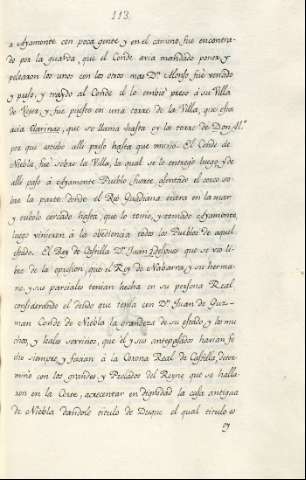 113.
a Ayamonte con poca gente y en el camino fue encontra-
do por la guarda, que el Conde avia mandado poner y
pelearon los unos con los otros mas Dn. Alonso fue vencido
y preso, y traydo al Conde el lo embiò preso à su Villa
de y fue puesto en una torre de la Villa, que esta
acia que se llama hasta oy la torre de Don Alo.
por que estubo alli preso hasta que murio. El Conde de
Niebla, fue sobre la Villa, la qual se le entregò luego y de
alli pasò a Ayamonte Pueblo fuerte, asentado el cerco so-
bre la parte donde el Rio Guadiana entra en la mar
y tubolo cercado hasta, que lo tomò, y tomado Ayamonte
luego vinieron à la obediencia todos los Pueblos de aquel
estado. El Rey de Castilla Dn. Juan 2º despues que se vio li-
bre de la opresion, que el Rey de Nabarra, y su herma-
no, y sus parciales tenian hecha en su persona Real
considerando el deudo que tenia con Dn. Juan de Guz-
man Conde de Niebla la grandeza de su estado y los mu-
chos, y leales servicios, que el y sus antepasados havian fe-
cho siempre, y facian à la Corona Real de Castilla, deter-
minò con los grandes y Prelados del Reyno que se halla-
ron en la Corte, acrecentar en dignidad la casa antigua
de Niebla dandole titulo de Duque el qual titulo es
oy